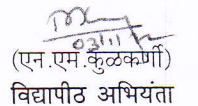 03/11
(एन.एम.कुळकर्णी)
विद्यापीठ अभियंता